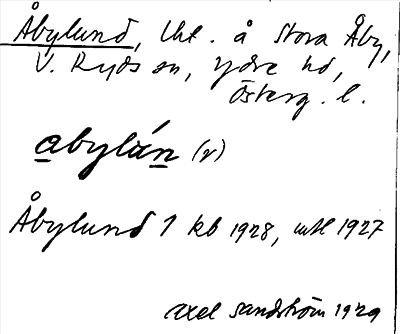 Åbylund, lht. å Stora Åby,
V. Ryds sn, Ydre hd,
Österg. l.
abylún (r)
Åbylund 1 kb 1928, mtl 1927
Axel Sandström 1929